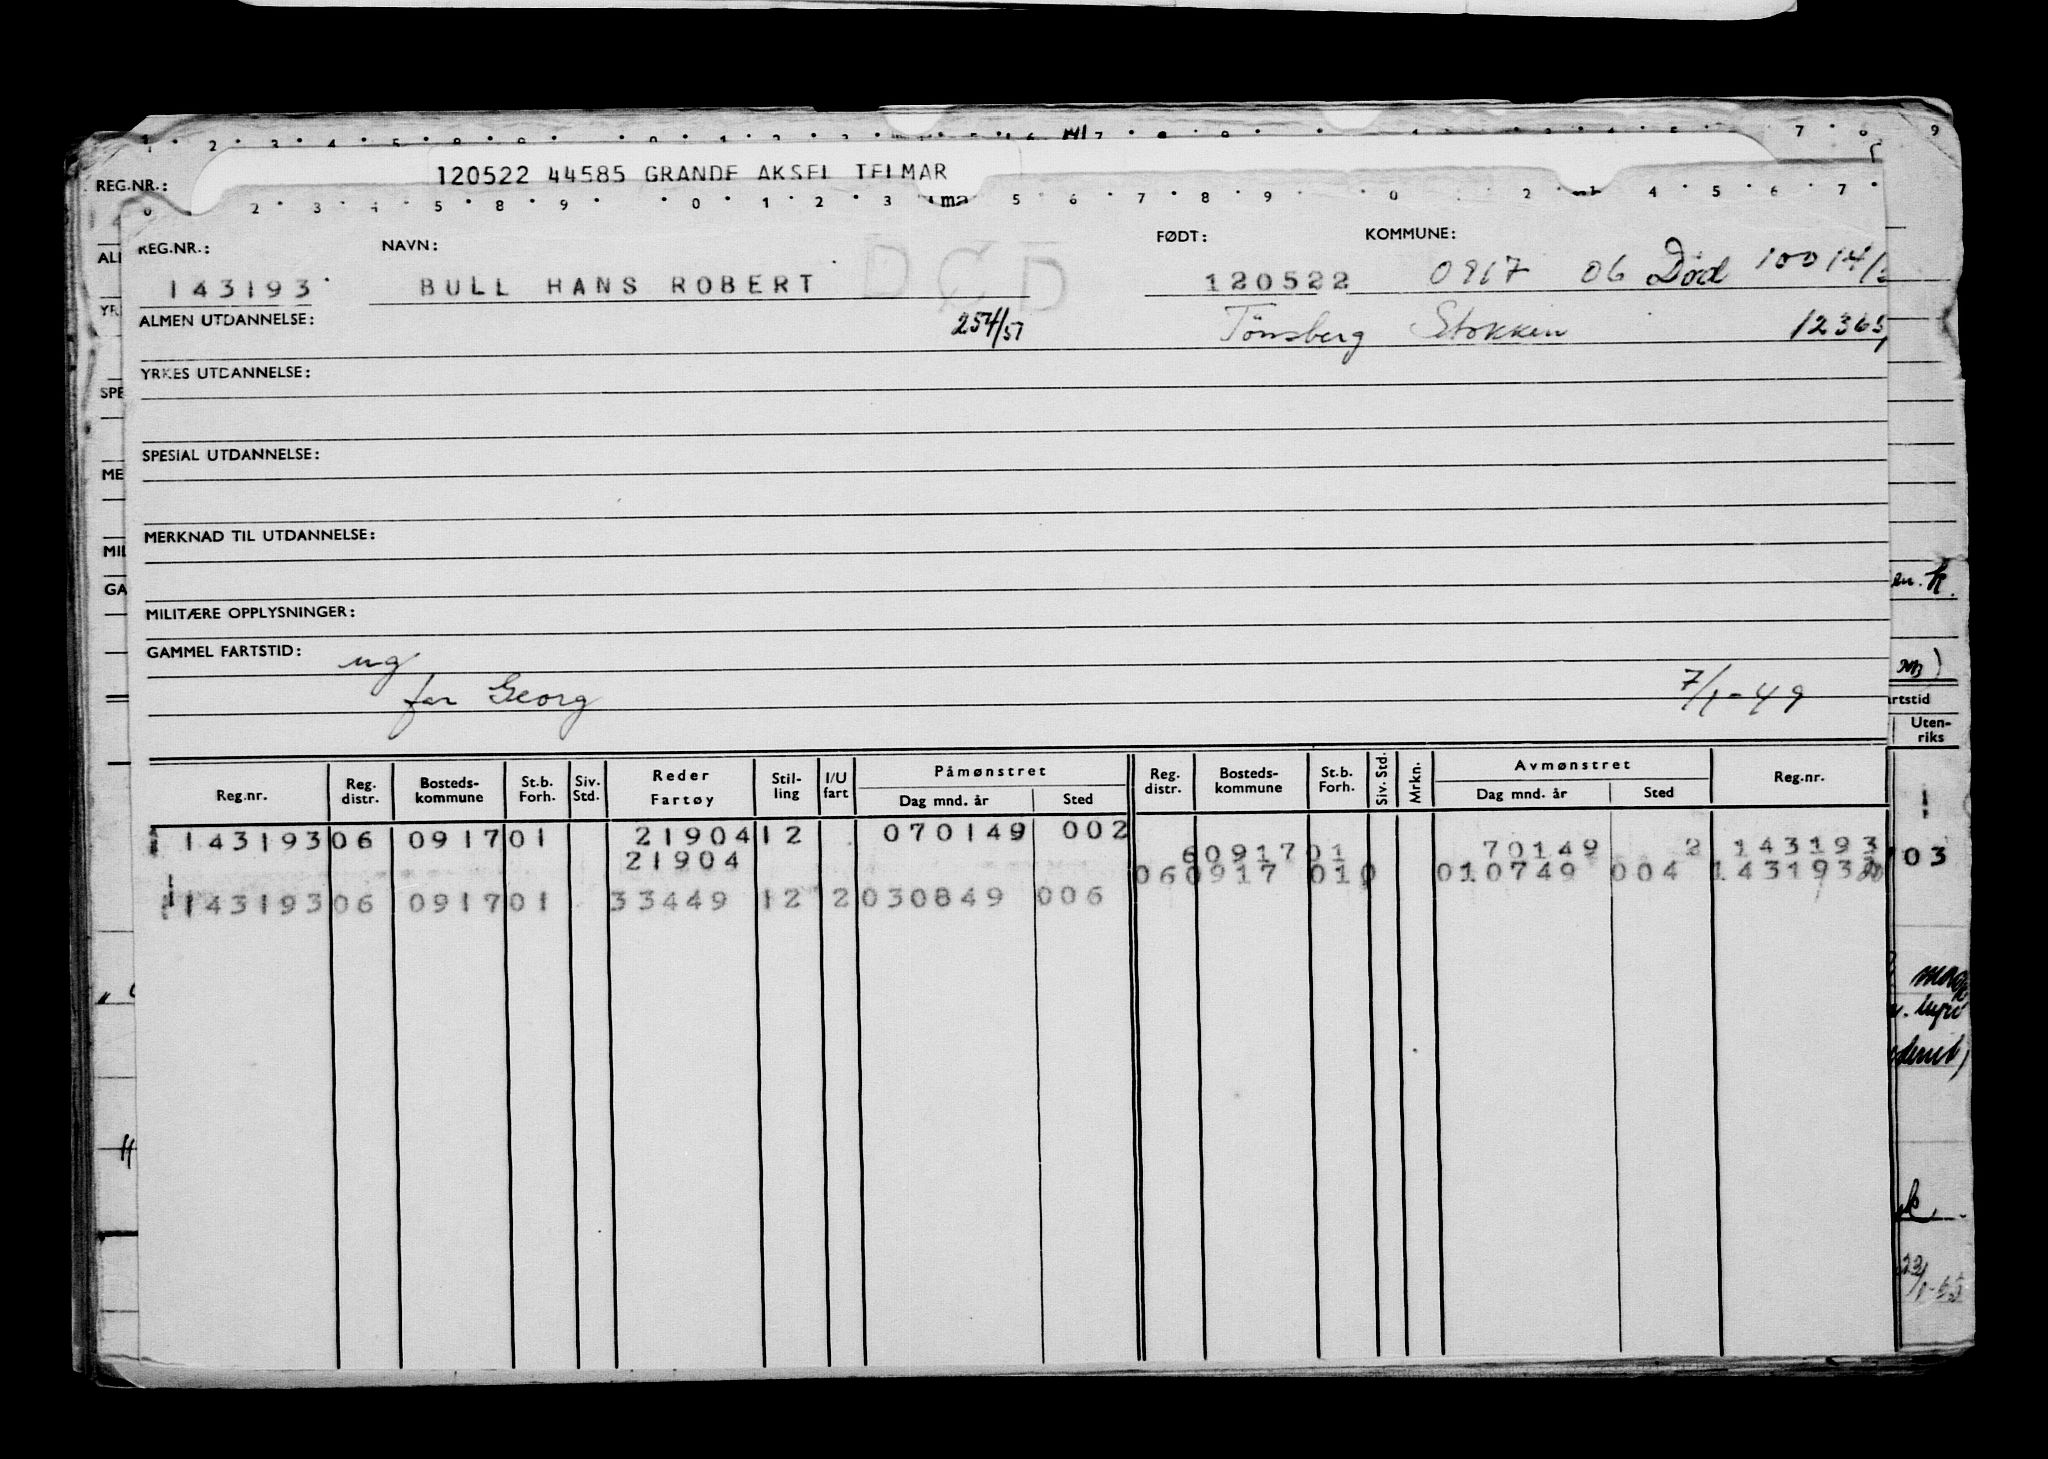 120522 44585 GRANDE AKSEL TELMAR
REG.NR.:
REG.NR.: NAVN: FØDT: KOMMUNE:
143193 BULL HANS ROBERT DØD 120522 0917 06 Død 10014/
ALMEN UTDANNELSE: 254/51 Tönsberg Stokken 12365
YRKES UTDANNELSE:
SPESIAL UTDANNELSE:
MERKNAD TIL UTDANNELSE:
MILITÆRE OPPLYSNINGER:
GAMMEL FARTSTID: ug
far Georg 7/1-49
Reg.nr. Reg. distr. Bosteds-kommune St.b. Forh. Siv. Std. Reder Fartøy Stil-ling I/U fart Påmønstret Dag mnd. år Sted Reg. distr. Bosteds-kommune St.b. Forh. Siv. Std. Mrkn. Avmønstret Dag mnd. år Sted Reg.nr.
143193 06 0917 01 21904 12 070149 002
6 0917 01 70149 2 143193
21904
06 0917 010 010749 004 143193
143193 06 0917 01 33449 12 2 030849 006
Uten-
riks
03